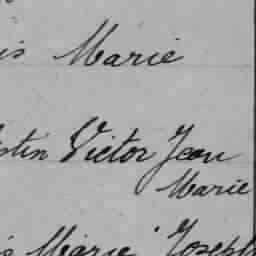 is Marie
stin Victor Jean
Marie
is Marie Joseph